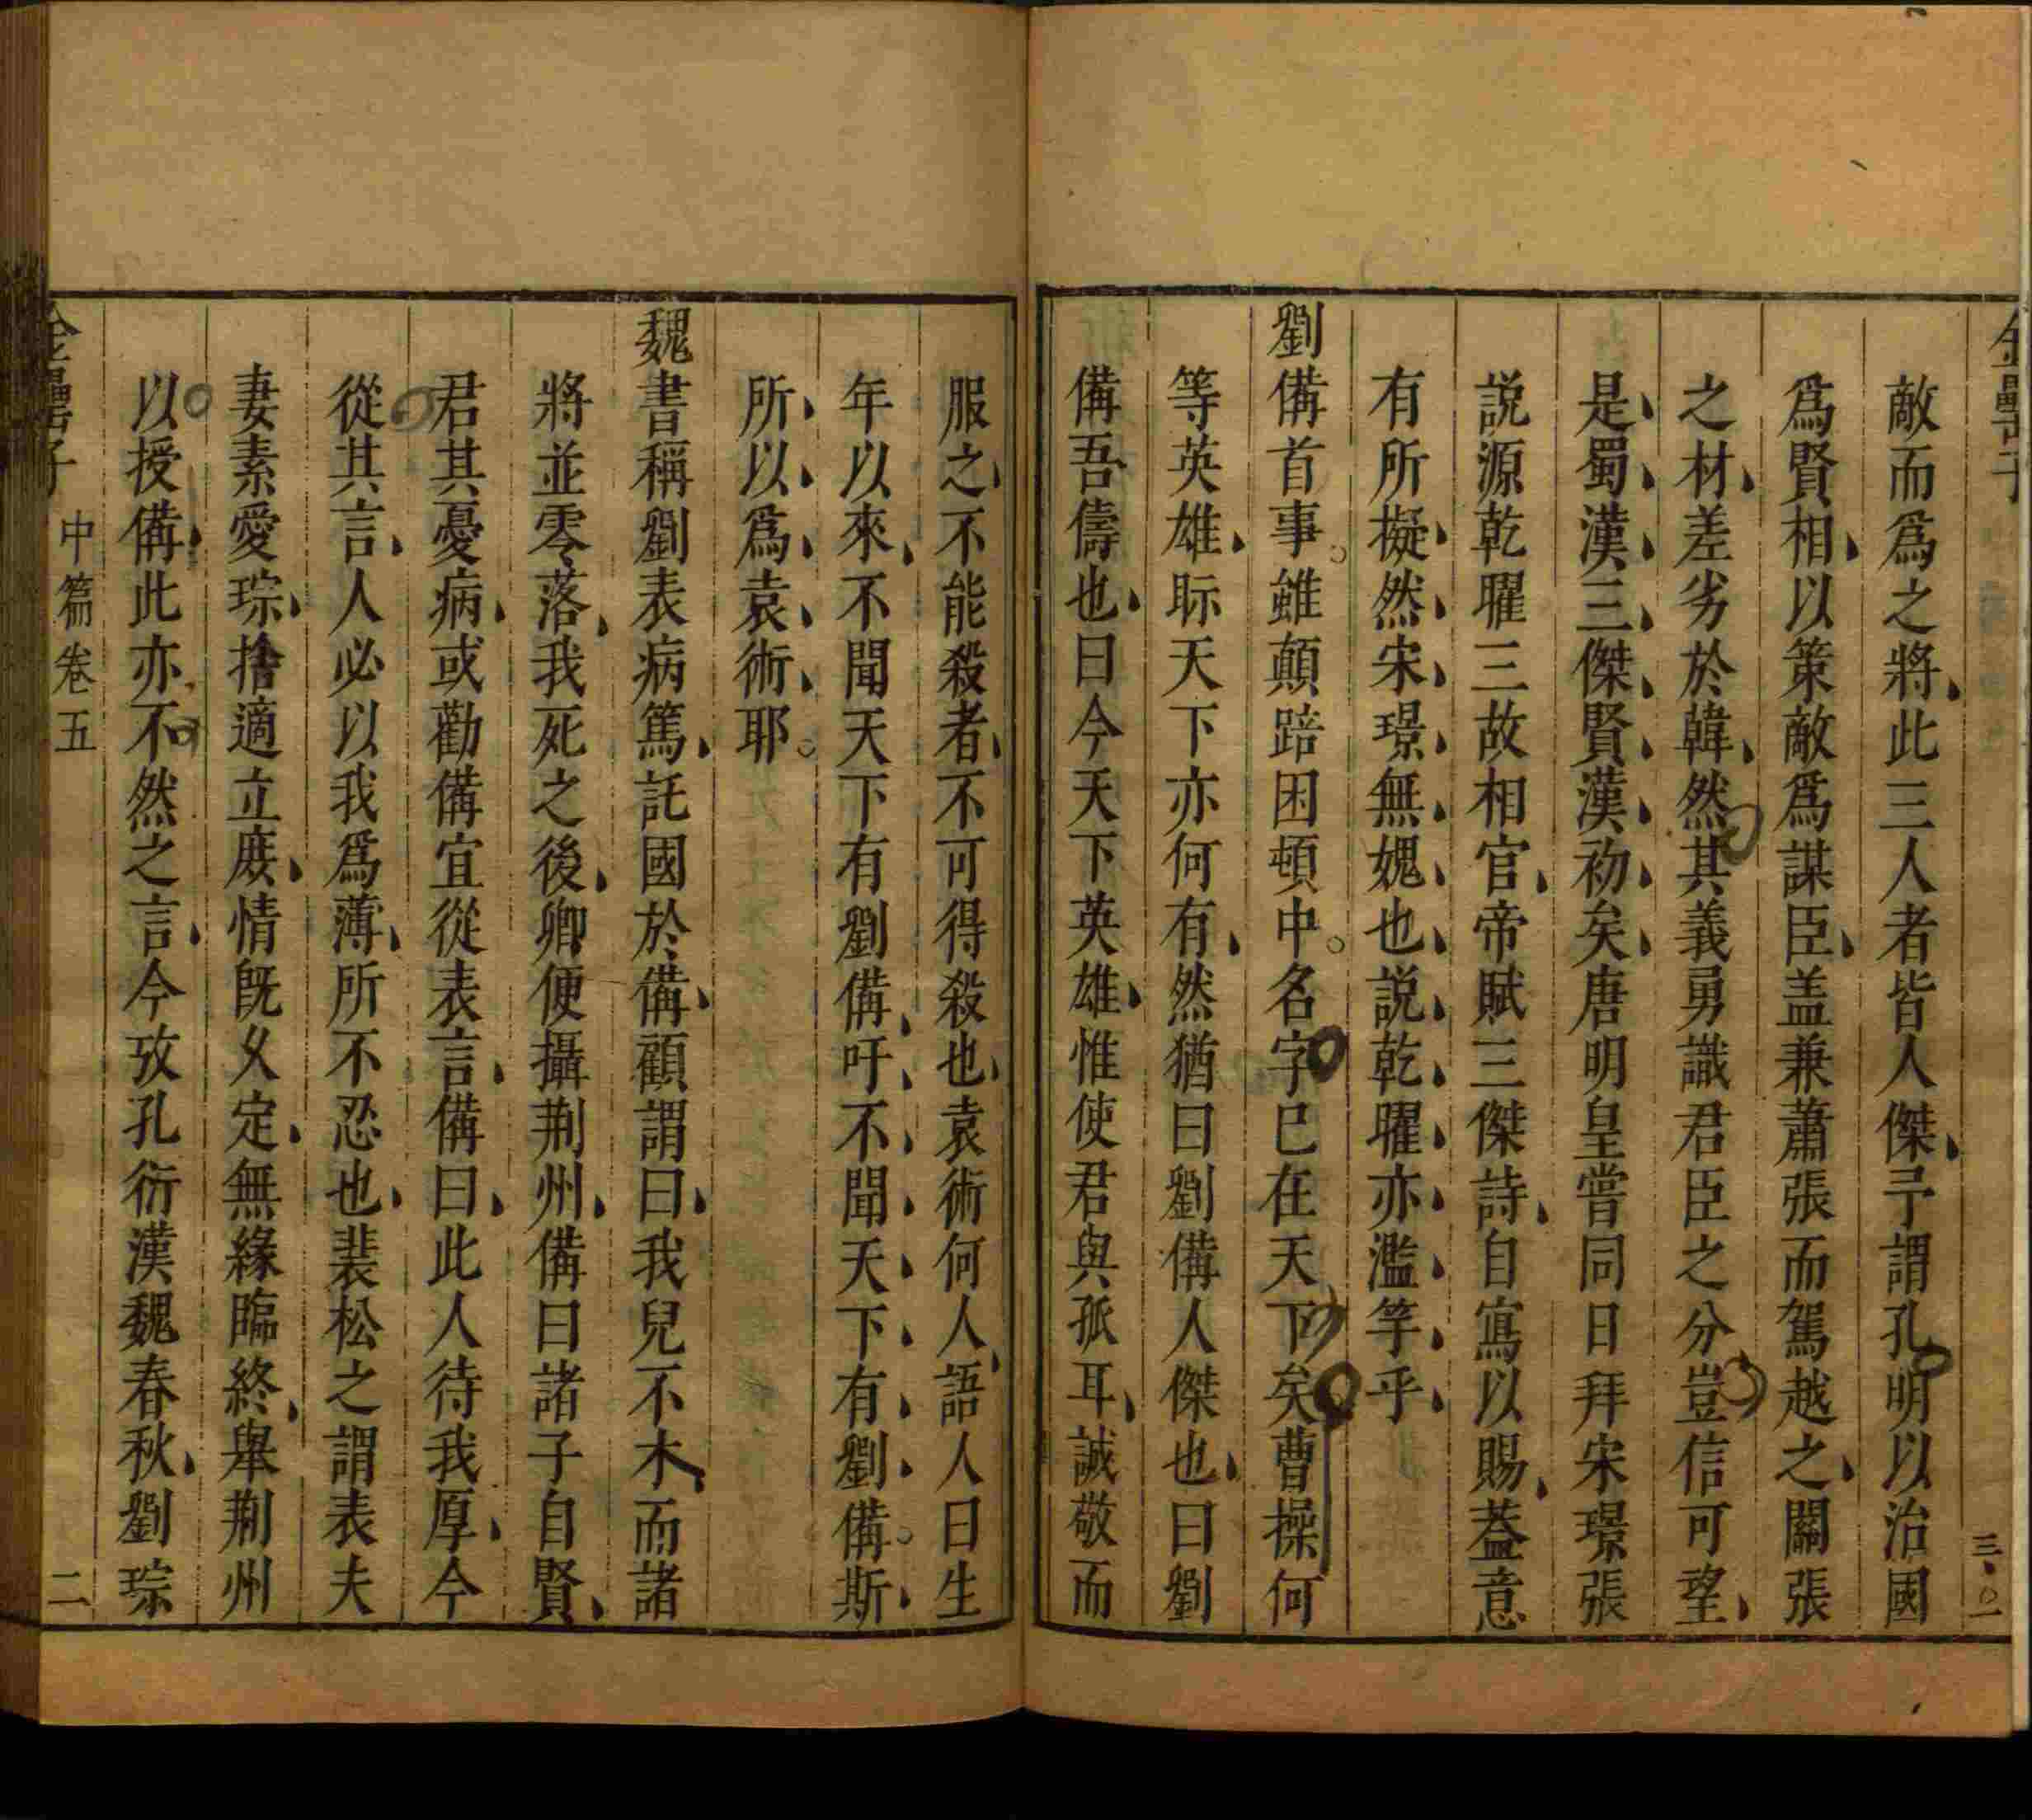 金罍子
三〇一
敵而爲之將此三人者皆人傑予謂孔明以治國
爲賢相以策敵爲謀臣盖兼蕭張而駕越之關張
之材差劣於韓然其義勇識君臣之分豈信可望
是蜀漢三傑賢漢初矣唐明皇嘗同日拜宋璟張
説源乾曜三故相官帝賦三傑詩自寫以賜葢意
有所擬然宋璟無媿也説乾曜亦濫竽乎
劉備首事雖顛踣困頓中名字已在天下矣曹操何
等英雄眎天下亦何有然猶曰劉備人傑也曰劉
備吾儔也曰今天下英雄惟使君與孤耳誠敬而
服之不能殺者不可得殺也袁術何人語人曰生
年以來不聞天下有劉備吁不聞天下有劉備斯
所以爲袁術耶
魏書稱劉表病篤託國於備顧謂曰我兒不木而諸
將並零落我死之後卿便攝荆州備曰諸子自賢
君其憂病或勸備宜從表言備曰此人待我厚今
從其言人必以我爲薄所不忍也裴松之謂表夫
妻素愛琮捨適立庻情旣乆定無緣臨終舉荆州
以授備此亦不然之言今攷孔衍漢魏春秋劉琮
金罍子
中篇卷五
二